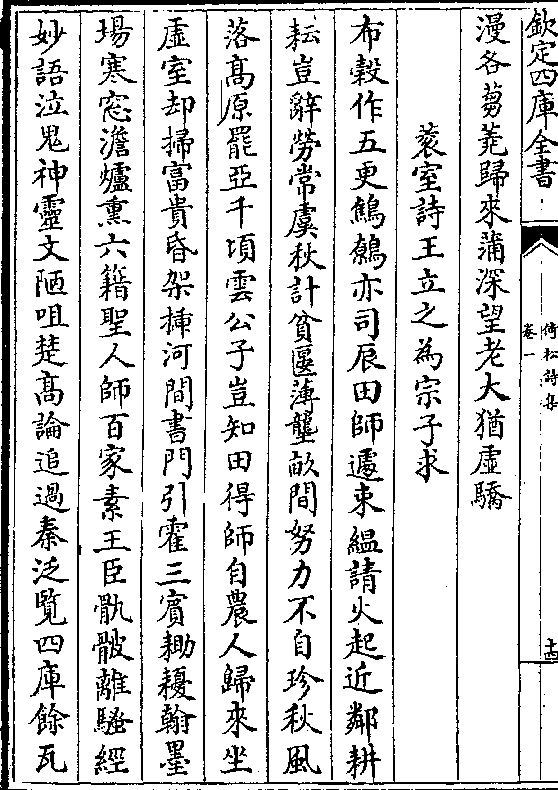 欽定四庫全書
倚松詩集
卷一
十四
漫各芻蕘歸來蒲深望老大猶虛驕
蓑室詩王立之為宗子求
布穀作五更鵂鶹亦司辰田師遽束縕請火起近鄰耕
耘豈辭勞常虞秋計貧區薄壟畝間努力不自珍秋風
落髙原罷亞千頃雲公子豈知田得師自農人歸來坐
虛室却掃富貴昏架揷河間書門引霍三賓耡耰翰墨
場寒窓澹爐熏六籍聖人師百家素王臣骩骳離騷經
妙語泣鬼神靈文陋咀楚髙論追過秦泛覽四庫餘瓦